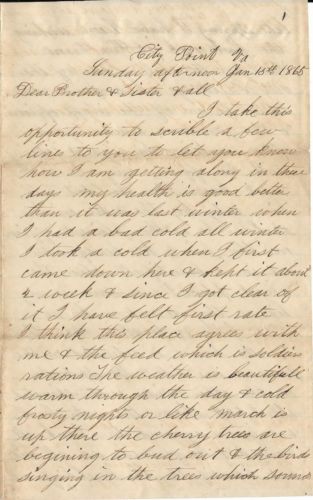 1
City Point Va
Sunday afternoon Jan 15th 1865
Dear Brother & Sister & all
I take this
opportunity to scrible a few
lines to you to let you know
how I am getting along in these
days my health is good better
than it was last winter when
I had a bad cold all winter
I took a cold when I first
came down here & kept it about
a week & since I got clear of
it I have felt first rate
I think this place agrees with
me & the feed which is soldiers
rations The weather is beautifull
warm through the day & cold
frosty nights or like march is
up there the cherry trees are
begining to bud out & the birds
singing in the trees which sounds